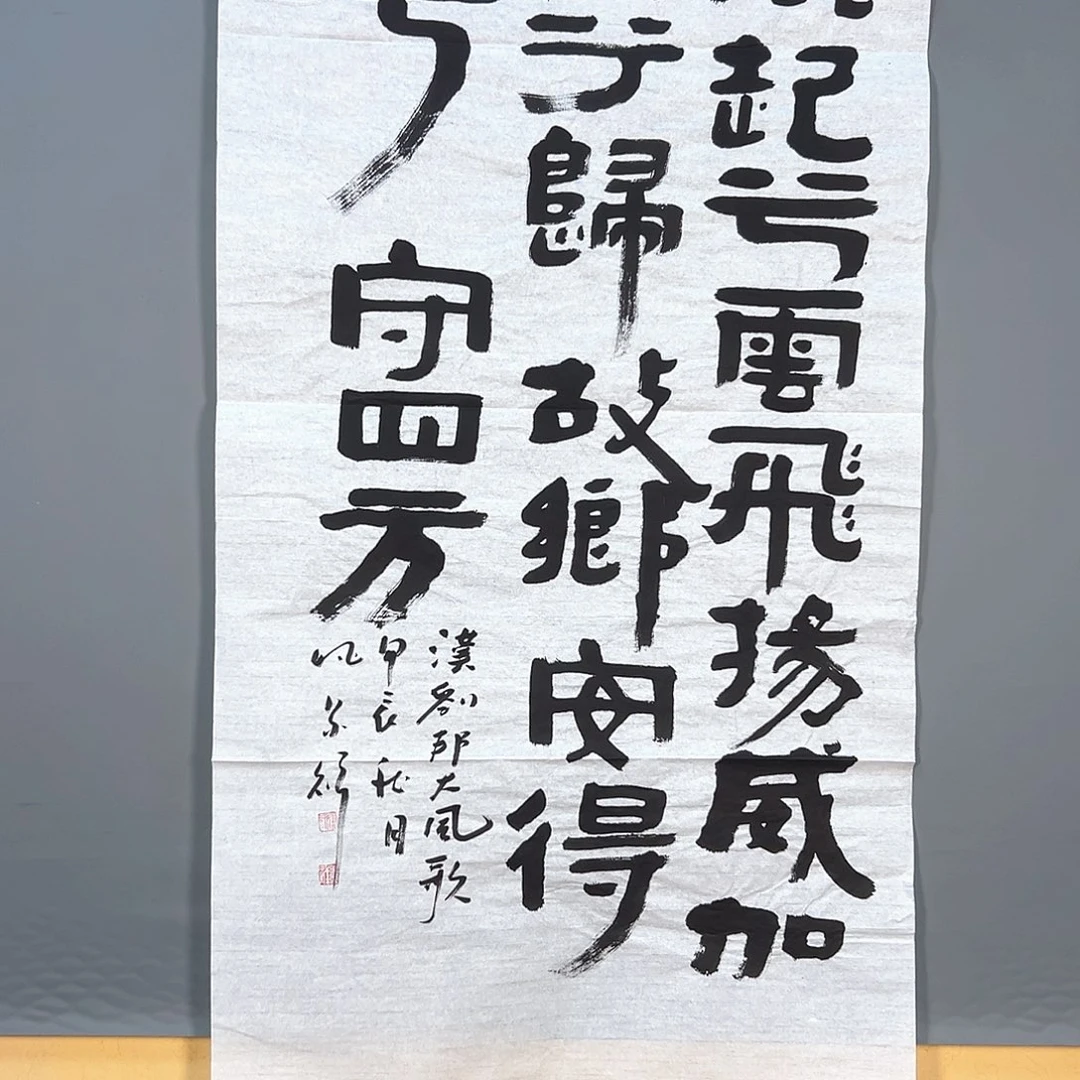 起兮雲飛揚威加
兮歸故鄉安得
兮守四方
漢劉邦大風歌
甲辰秋月